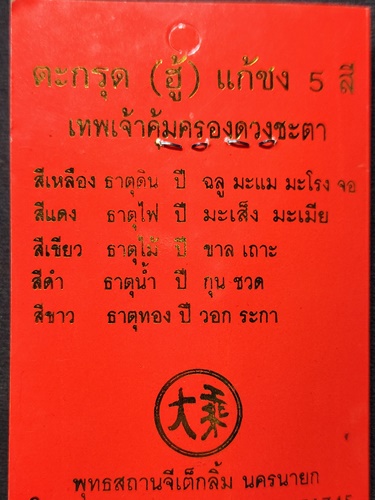 ตะกรุด (ฮู้) แก้ชง 5 สี
เทพเจ้าคุ้มครองดวงชะตา
สีเหลือง ธาตุดิน ปี ฉลู มะแม มะโรง จอ
สีแดง ธาตุไฟ ปี มะเส็ง มะเมีย
สีเขียว ธาตุไม้ ปี ขาล เถาะ
สีดำ ธาตุน้ำ ปี กุน ชวด
สีขาว ธาตุทอง ปี วอก ระกา
大乘
พุทธสถานจีเต็กลิ้ม นครนายก